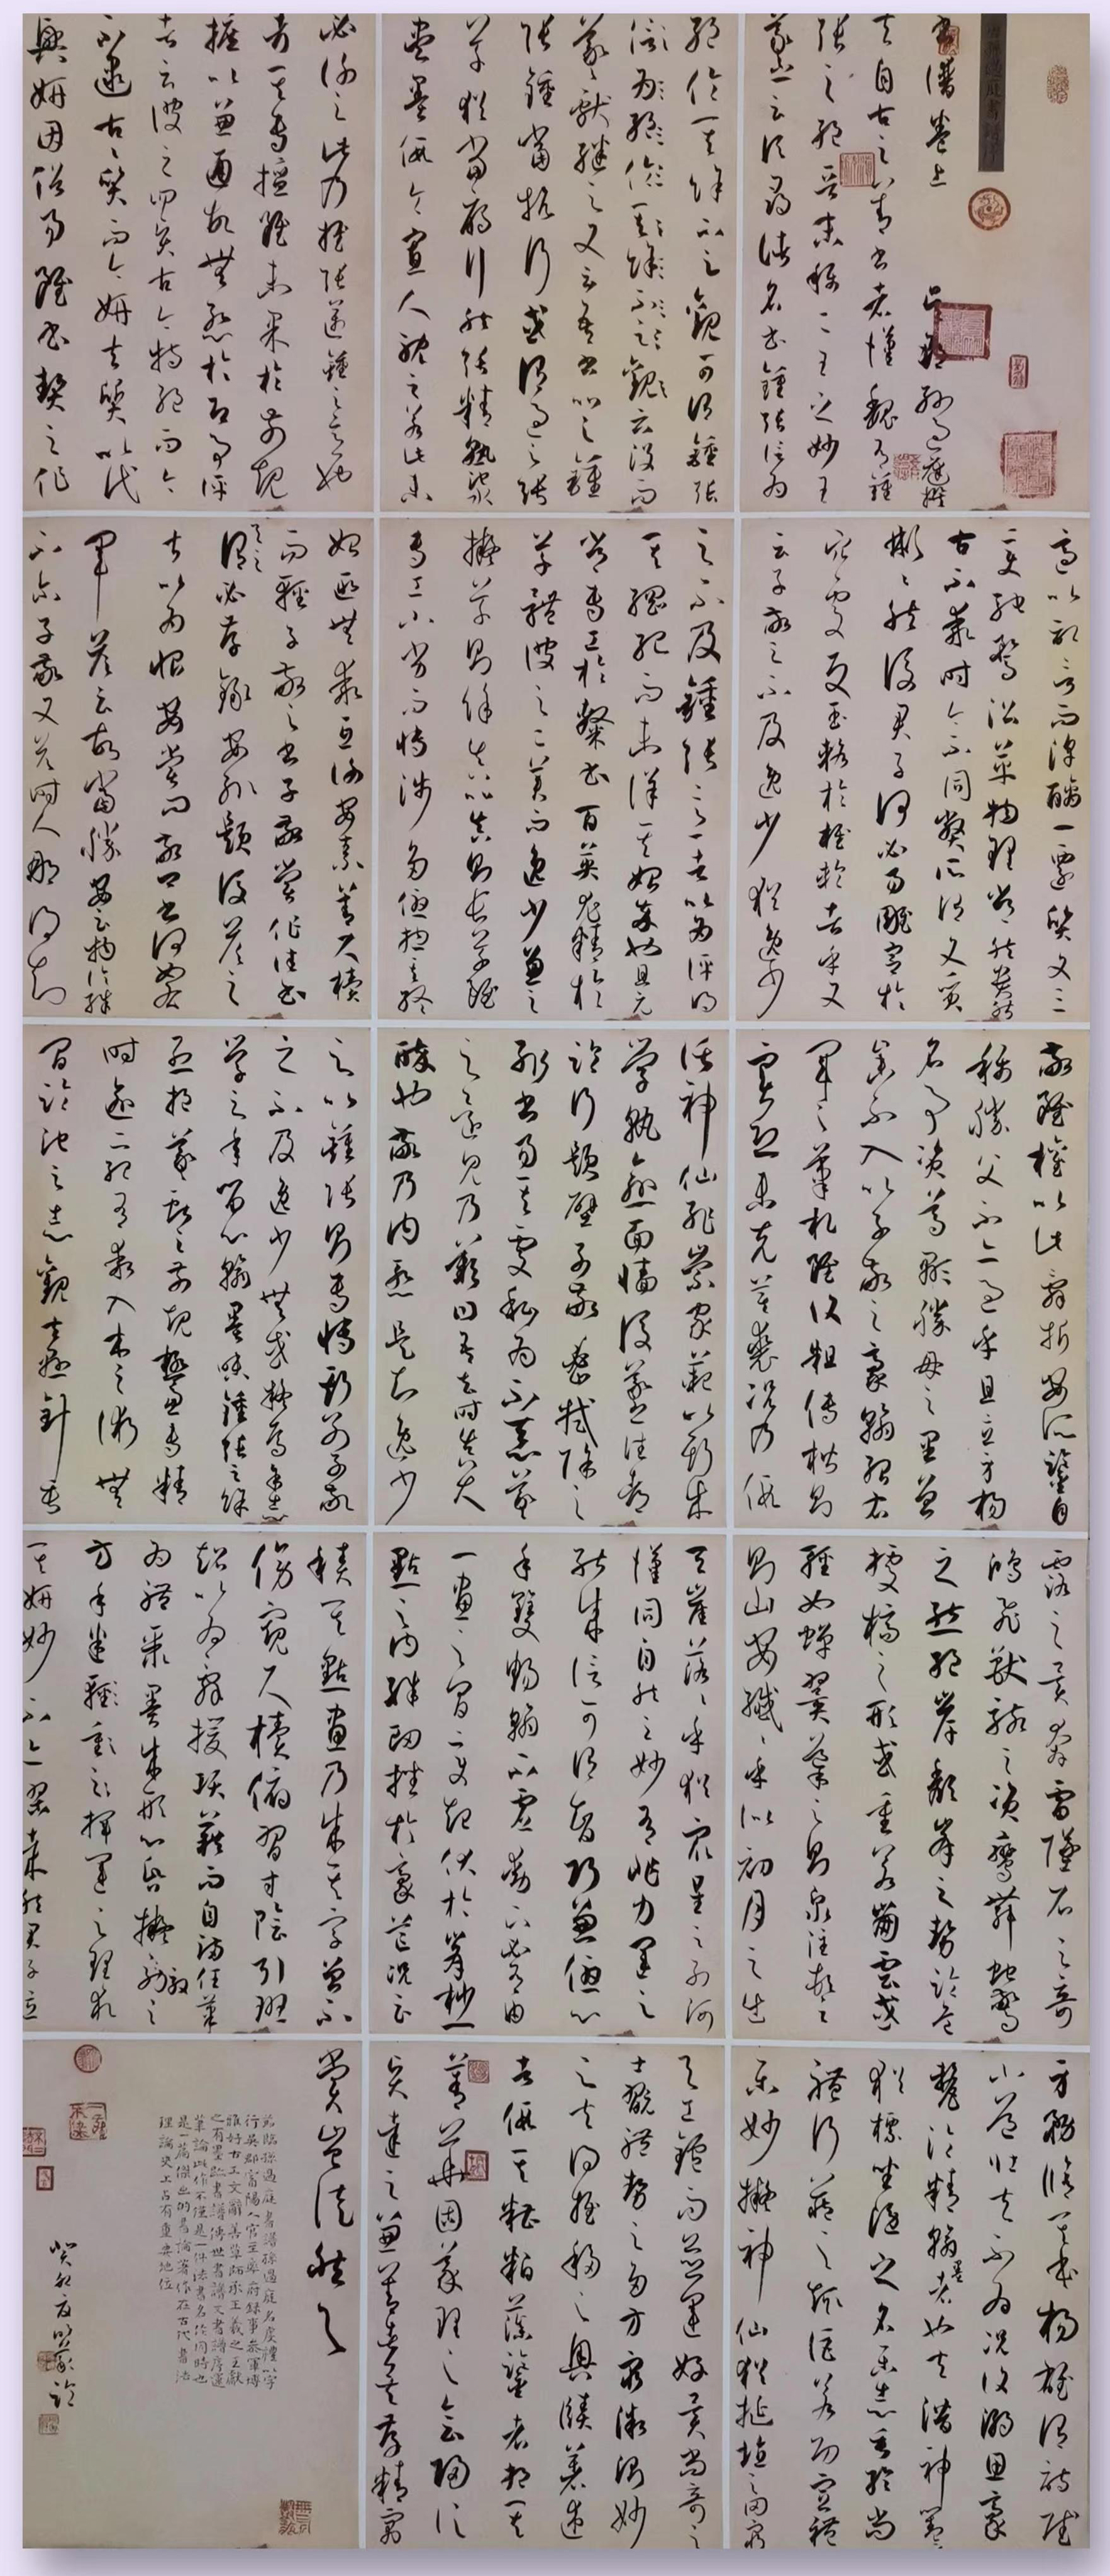 書譜卷上 吳郡孫過庭撰
夫自古之善書者漢魏有鍾
張之絕晉末稱二王之妙王
羲之云頃尋諸名書鍾張信為
絕倫其餘不足觀可謂鍾張
信為絕倫其餘不足觀云沒而
羲獻繼之又云吾書比之鍾
張鍾當抗行或謂過之張
草猶當雁行然張精熟池水
盡墨假令寡人耽之若此未
必謝之此乃推張邁鍾之意也
考其專擅雖未果於前規
摭以兼通故無慚於即事評
者云彼之四賢古今特絕而今
不逮古古質而今妍夫質以代
興妍因俗易雖書契之作
適以記言而淳醨一遷質文三
變馳騖沿革物理常然貴能
古不乖時今不同弊所謂文質
彬彬然後君子何必易雕宮於
穴處反玉輅於椎輪者乎又
云子敬之不及逸少猶逸少
之不及鍾張意者以為評得
其綱紀而未詳其始卒也且元
常專工於隸書百英尤精於
草體彼之二美而逸少兼之
擬草則餘真比真則長草雖
專工小劣而博涉多優總其終
始匪無乖互謝安素善尺牘
而輕子敬之書子敬嘗作佳書
與之謂必存錄安輒題後答之
甚以為恨安嘗問敬卿書何如右
軍答云故當勝安云物論殊
不爾子敬又答時人那得知
敬雖權以此辭折安所鑒自
稱勝父不亦過乎且立身揚
名事資尊顯勝母之里曾
參不入以子敬之豪翰紹右
軍之筆札雖復粗傳楷則
實恐未克箕裘況乃假
託神仙恥崇家範以斯成
學孰愈面牆後羲之往都
臨行題壁子敬密拭除之
輒書易其處私為不惡羲
之還見乃歎曰吾去時真大
醉也敬乃內慚是知逸少
之比鍾張則專博斯別子敬
之不及逸少無或疑焉余志
學之年留心翰墨味鍾張之餘
烈挹羲獻之前規極慮專精
時逾二紀有乖入木之術無
間臨池之志觀夫懸針垂
露之異奔雷墜石之奇
鴻飛獸駭之資鸞舞蛇驚
之態絕岸頹峰之勢臨危
據槁之形或重若崩雲或
輕如蟬翼導之則泉注頓之
則山安纖纖乎似初月之出
天崖落落乎猶眾星之列河
漢同自然之妙有非力運之
能成信可謂智巧兼優心
手雙暢翰不虛動下必有由
一畫之間變起伏於峰杪一
點之內殊衄挫於豪芒況云
積其點畫乃成其字曾不
傍窺尺牘俯習寸陰引班
超以為辭援項籍而自滿任筆
為體聚墨成形心昏擬效之
方手迷輕重揮運之理求
其妍妙不亦謬哉然君子立
身務脩其本揚雄謂詩賦
小道壯夫不為況復溺思豪
釐淪精翰墨者也夫潛神對弈
猶標坐隱之名樂志垂綸尚
體行藏之趣詎若功宣禮
樂妙擬神仙猶埏埴之罔窮
與工鑪而並運好異尚奇之
士玩體勢之多方窮微測妙
之夫得推移之奧賾著述
者假其糟粕藻鑒者挹其
菁華固義理之會歸信
賢達之兼善者矣存精寓
賞豈徒然與
節臨孫過庭書譜孫過庭名虔禮以字
行吳郡富陽人官至率府錄事參軍博
雅好古工文辭善草師承王羲之王獻
之有墨跡書譜傳世書譜又書譜序運
筆論此作不僅是一件法書名作同時也
是一篇傑出的書論著作在古代書法
理論史上占有重要地位
癸卯夏臨